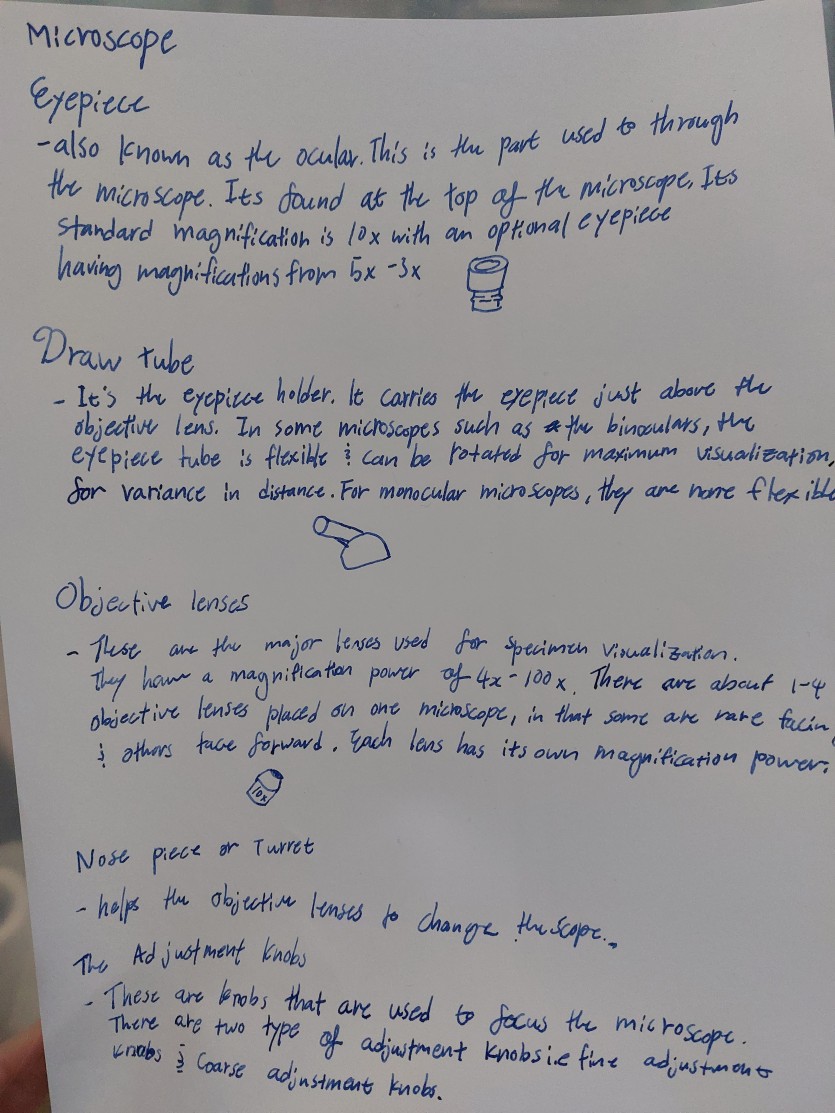 Microscope
Eyepiece
-also known as the ocular. This is the part used to through
the microscope. Its found at the top of the microscope. Its
standard magnification is 10x with an optional eyepiece
having magnifications from 5x -3x
Draw tube
- It's the eyepiece holder. It carries the eyepiece just above the
objective lens. In some microscopes such as the binoculars, the
eyepiece tube is flexible & can be rotated for maximum visualization,
for variance in distance. For monocular microscopes, they are none flexible
Objective lenses
- These are the major lenses used for specimen visualization.
They have a magnification power of 4x - 100x. There are about 1-4
objective lenses placed on one microscope, in that some are rare facin
& others face forward. Each lens has its own magnification power.
10x
Nose piece or Turret
- helps the objective lenses to change the scope.
The Adjustment knobs
- These are knobs that are used to focus the microscope.
There are two type of adjustment knobs i.e fine adjustment
knobs & Coarse adjustment knobs.